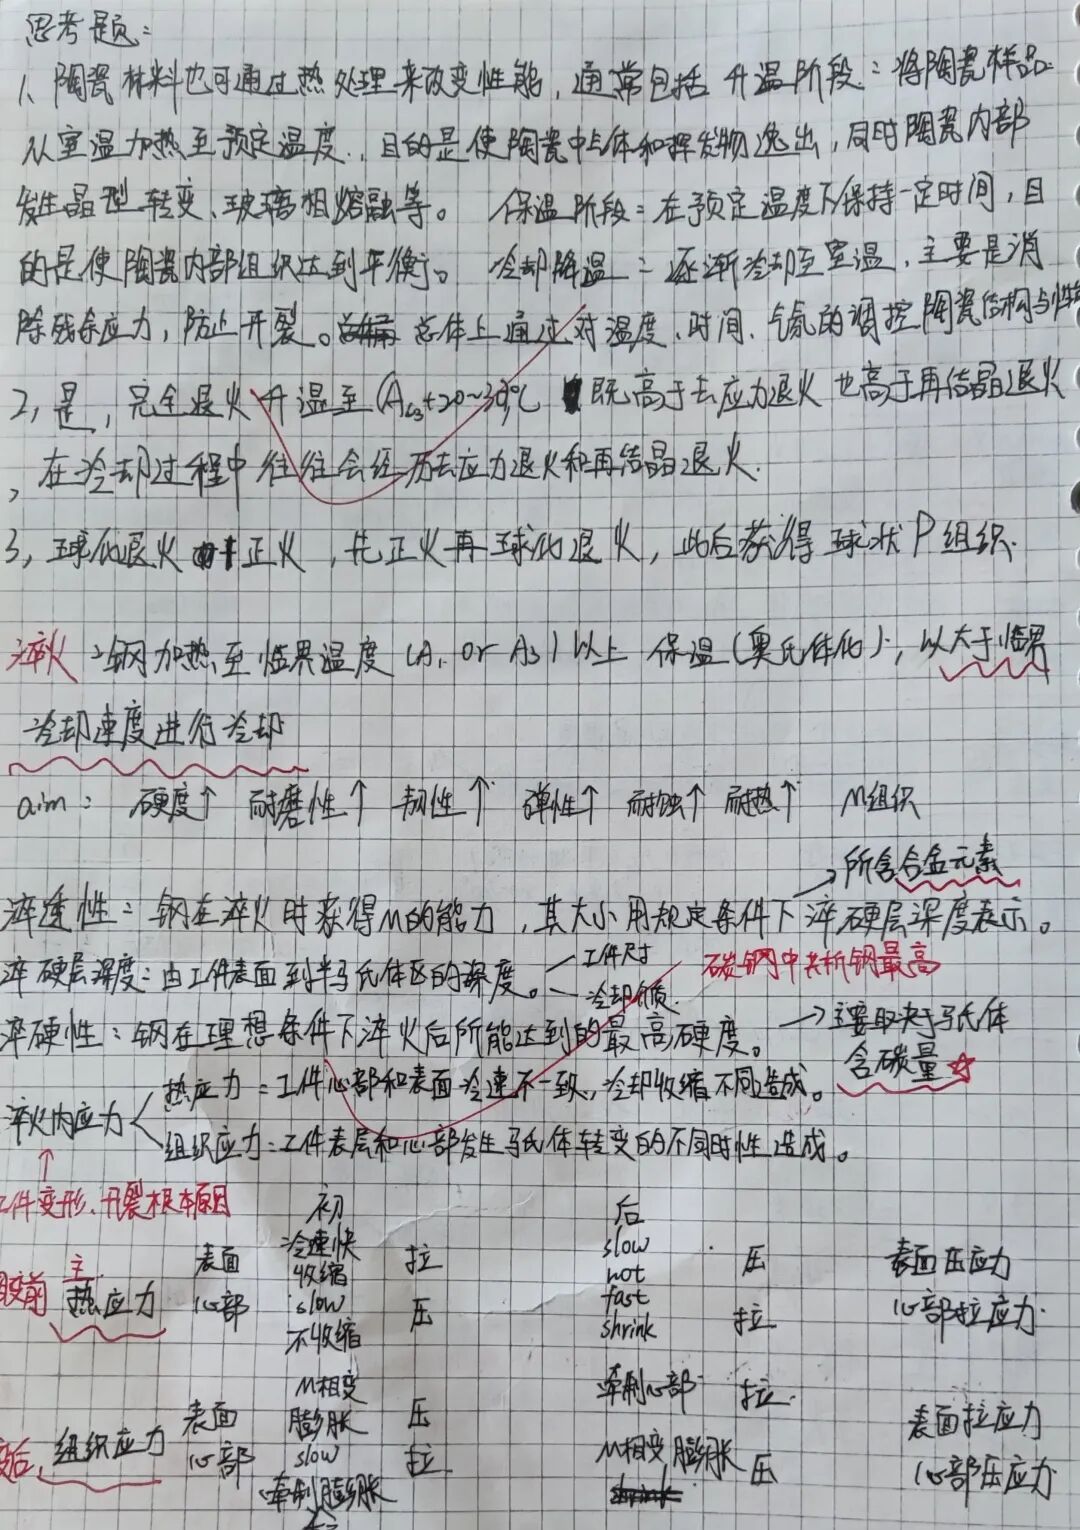 思考题：
1、陶瓷材料也可通过热处理来改变性能，通常包括 升温阶段：将陶瓷样品
从室温加热至预定温度，目的是使陶瓷中气体和挥发物逸出，同时陶瓷内部
发生晶型转变、玻璃相熔融等。 保温阶段：在预定温度下保持一定时间，目
的是使陶瓷内部组织达到平衡。 冷却降温：逐渐冷却至室温，主要是消
除残余应力，防止开裂。总体上通过对温度、时间、气氛的调控陶瓷结构与性
2，是，完全退火升温至(Ac3+20~30)℃ 既高于去应力退火也高于再结晶退火
，在冷却过程中往往会经历去应力退火和再结晶退火.
3，球化退火 正火，先正火再球化退火，此后获得球状P组织.
淬火：钢加热至临界温度(A1 or A3)以上 保温(奥氏体化)，以大于临界
冷却速度进行冷却
aim： 硬度↑ 耐磨性↑ 韧性↑ 弹性↑ 耐蚀↑ 耐热↑ M组织
→所含合金元素
淬透性：钢在淬火时获得M的能力，其大小用规定条件下淬硬层深度表示。
淬硬层深度：由工件表面到半马氏体区的深度。
工件尺寸
冷却介质.
碳钢中共析钢最高
淬硬性：钢在理想条件下淬火后所能达到的最高硬度。 →主要取决于马氏体
含碳量☆
淬火内应力
热应力：工件心部和表面冷速不一致，冷却收缩不同造成。
组织应力：工件表层和心部发生马氏体转变的不同时性造成。
↑
工件变形、开裂根本原因
初 后
表面 冷速快 收缩 拉 slow not 压 表面压应力
主 热应力
心部 slow 不收缩 压 fast shrink 拉 心部拉应力
表面 M相变 膨胀 压 牵制心部 拉 表面拉应力
组织应力
心部 slow 牵制膨胀 拉 M相变膨胀 压 心部压应力